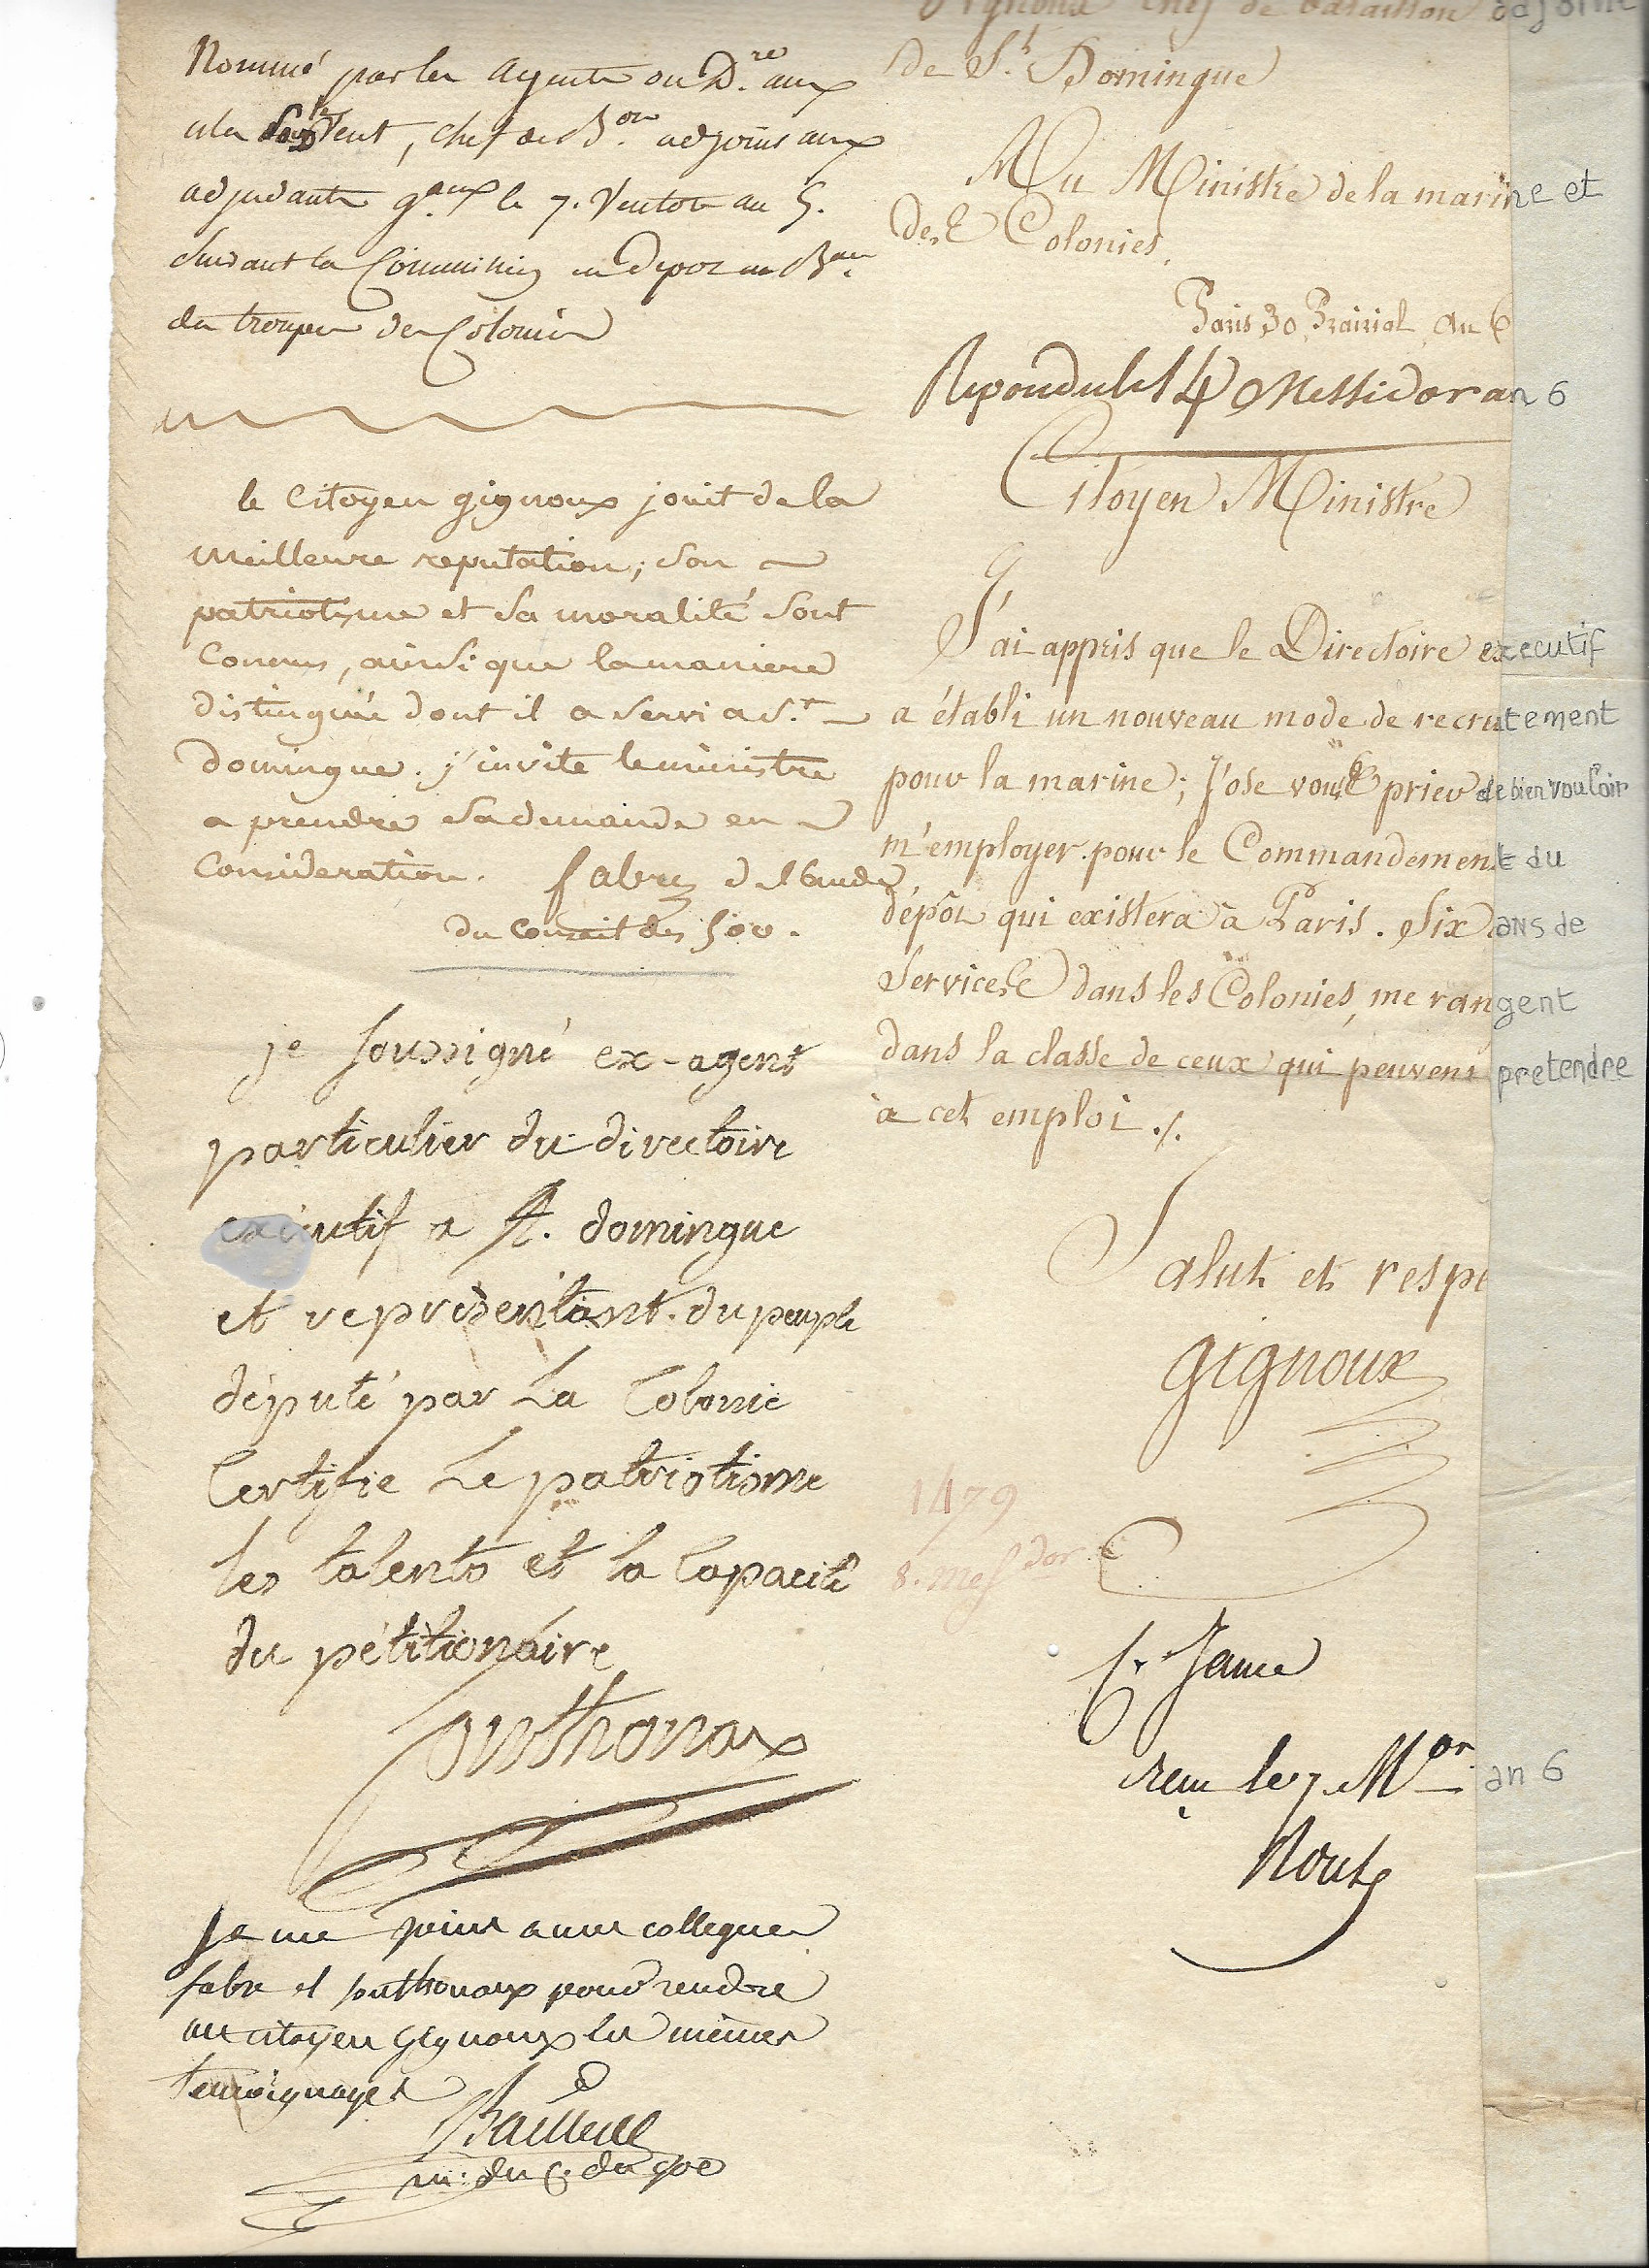 Nommé par les Agents du D.re aux
isles sous le Vent, chef de B.on adjoint aux
adjudants g.aux le 7. Ventose an 5.
Suivant la Commission en dépot au B.au
des troupes des Colonies
le Citoyen gignoux jouit de la
meilleure reputation; son
patriotisme et sa moralité sont
connus, ainsi que la maniere
distinguée dont il a servi a S.t
domingue. j'invite le ministre
a prendre sa demande en
Consideration. fabre de l'aude
du conseil des 500.
je soussigné ex-agent
particulier du directoire
exécutif a St. domingue
et représentant du peuple
député par La Colonie
Certifie Le patriotisme
les talents et la Capacité
du pétitionaire
Sonthonax
Je me joins a mes collegues
fabre et sonthonax pour rendre
au citoyen Gignoux les mêmes
temoignages
Bailleul
m: du C. des 500
Gignoux chef de bataillon adjoint
de S.t Domingue
Au Ministre de la marine et
des Colonies.
Paris 30 Prairial an 6
Repondu le 14 Messidor an 6
Citoyen Ministre
J'ai appris que le Directoire executif
a établi un nouveau mode de recrutement
pour la marine; J'ose vous prier de bien vouloir
m'employer pour le Commandement du
dépôt qui existera à Paris. Six ans de
Services dans les Colonies, me rangent
dans la classe de ceux qui peuvent pretendre
à cet emploi ./.
Salut et respe
gignoux
1479
8. mess dor
C. Jame
reçu le 7 M or an 6